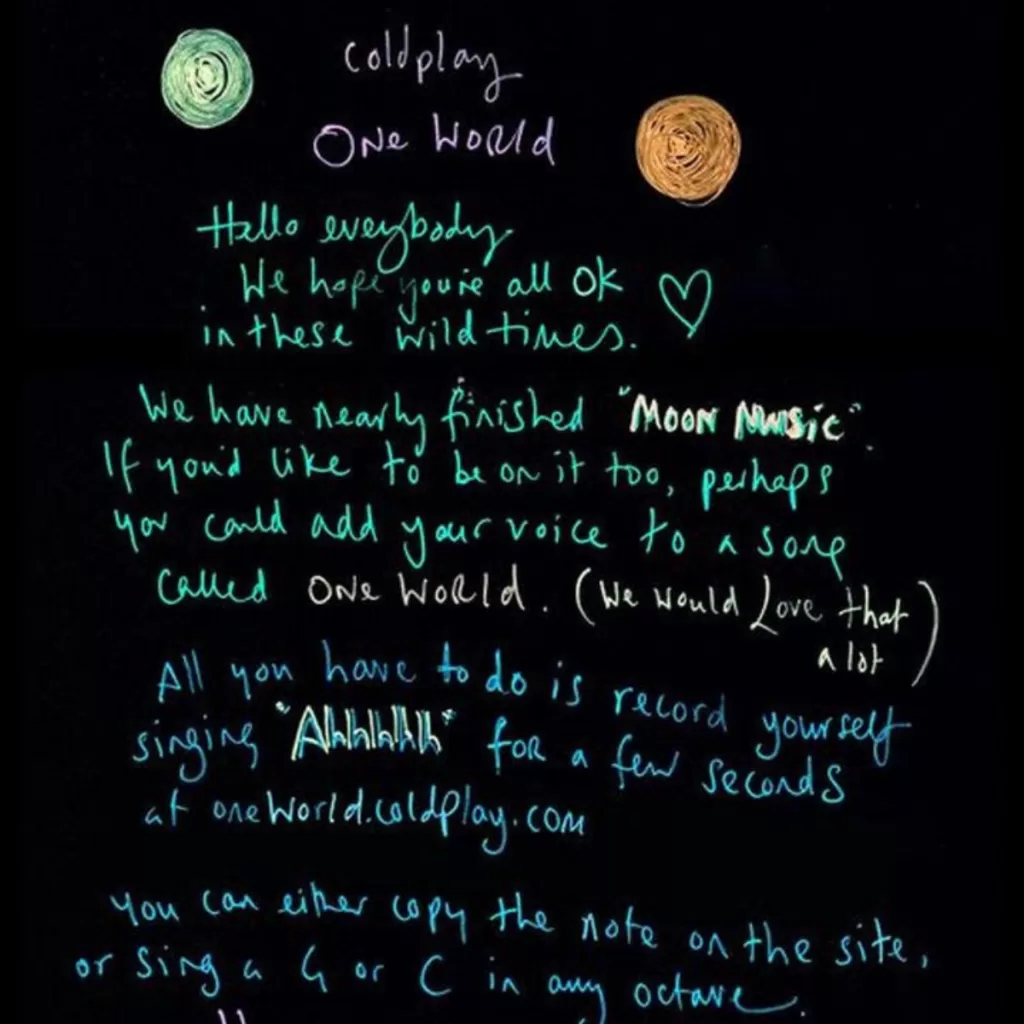 coldplay
ONE WORLD
Hello everybody
We hope you're all OK
in these wild times.
We have nearly finished "MOON MUSiC".
If you'd like to be on it too, perhaps
you could add your voice to a song
called ONE WORLD. (We would Love that
a lot)
All you have to do is record yourself
singing "Ahhhhh" for a few seconds
at oneWorld.coldplay.com
you can either copy the note on the site,
or sing a G or C in any octave.